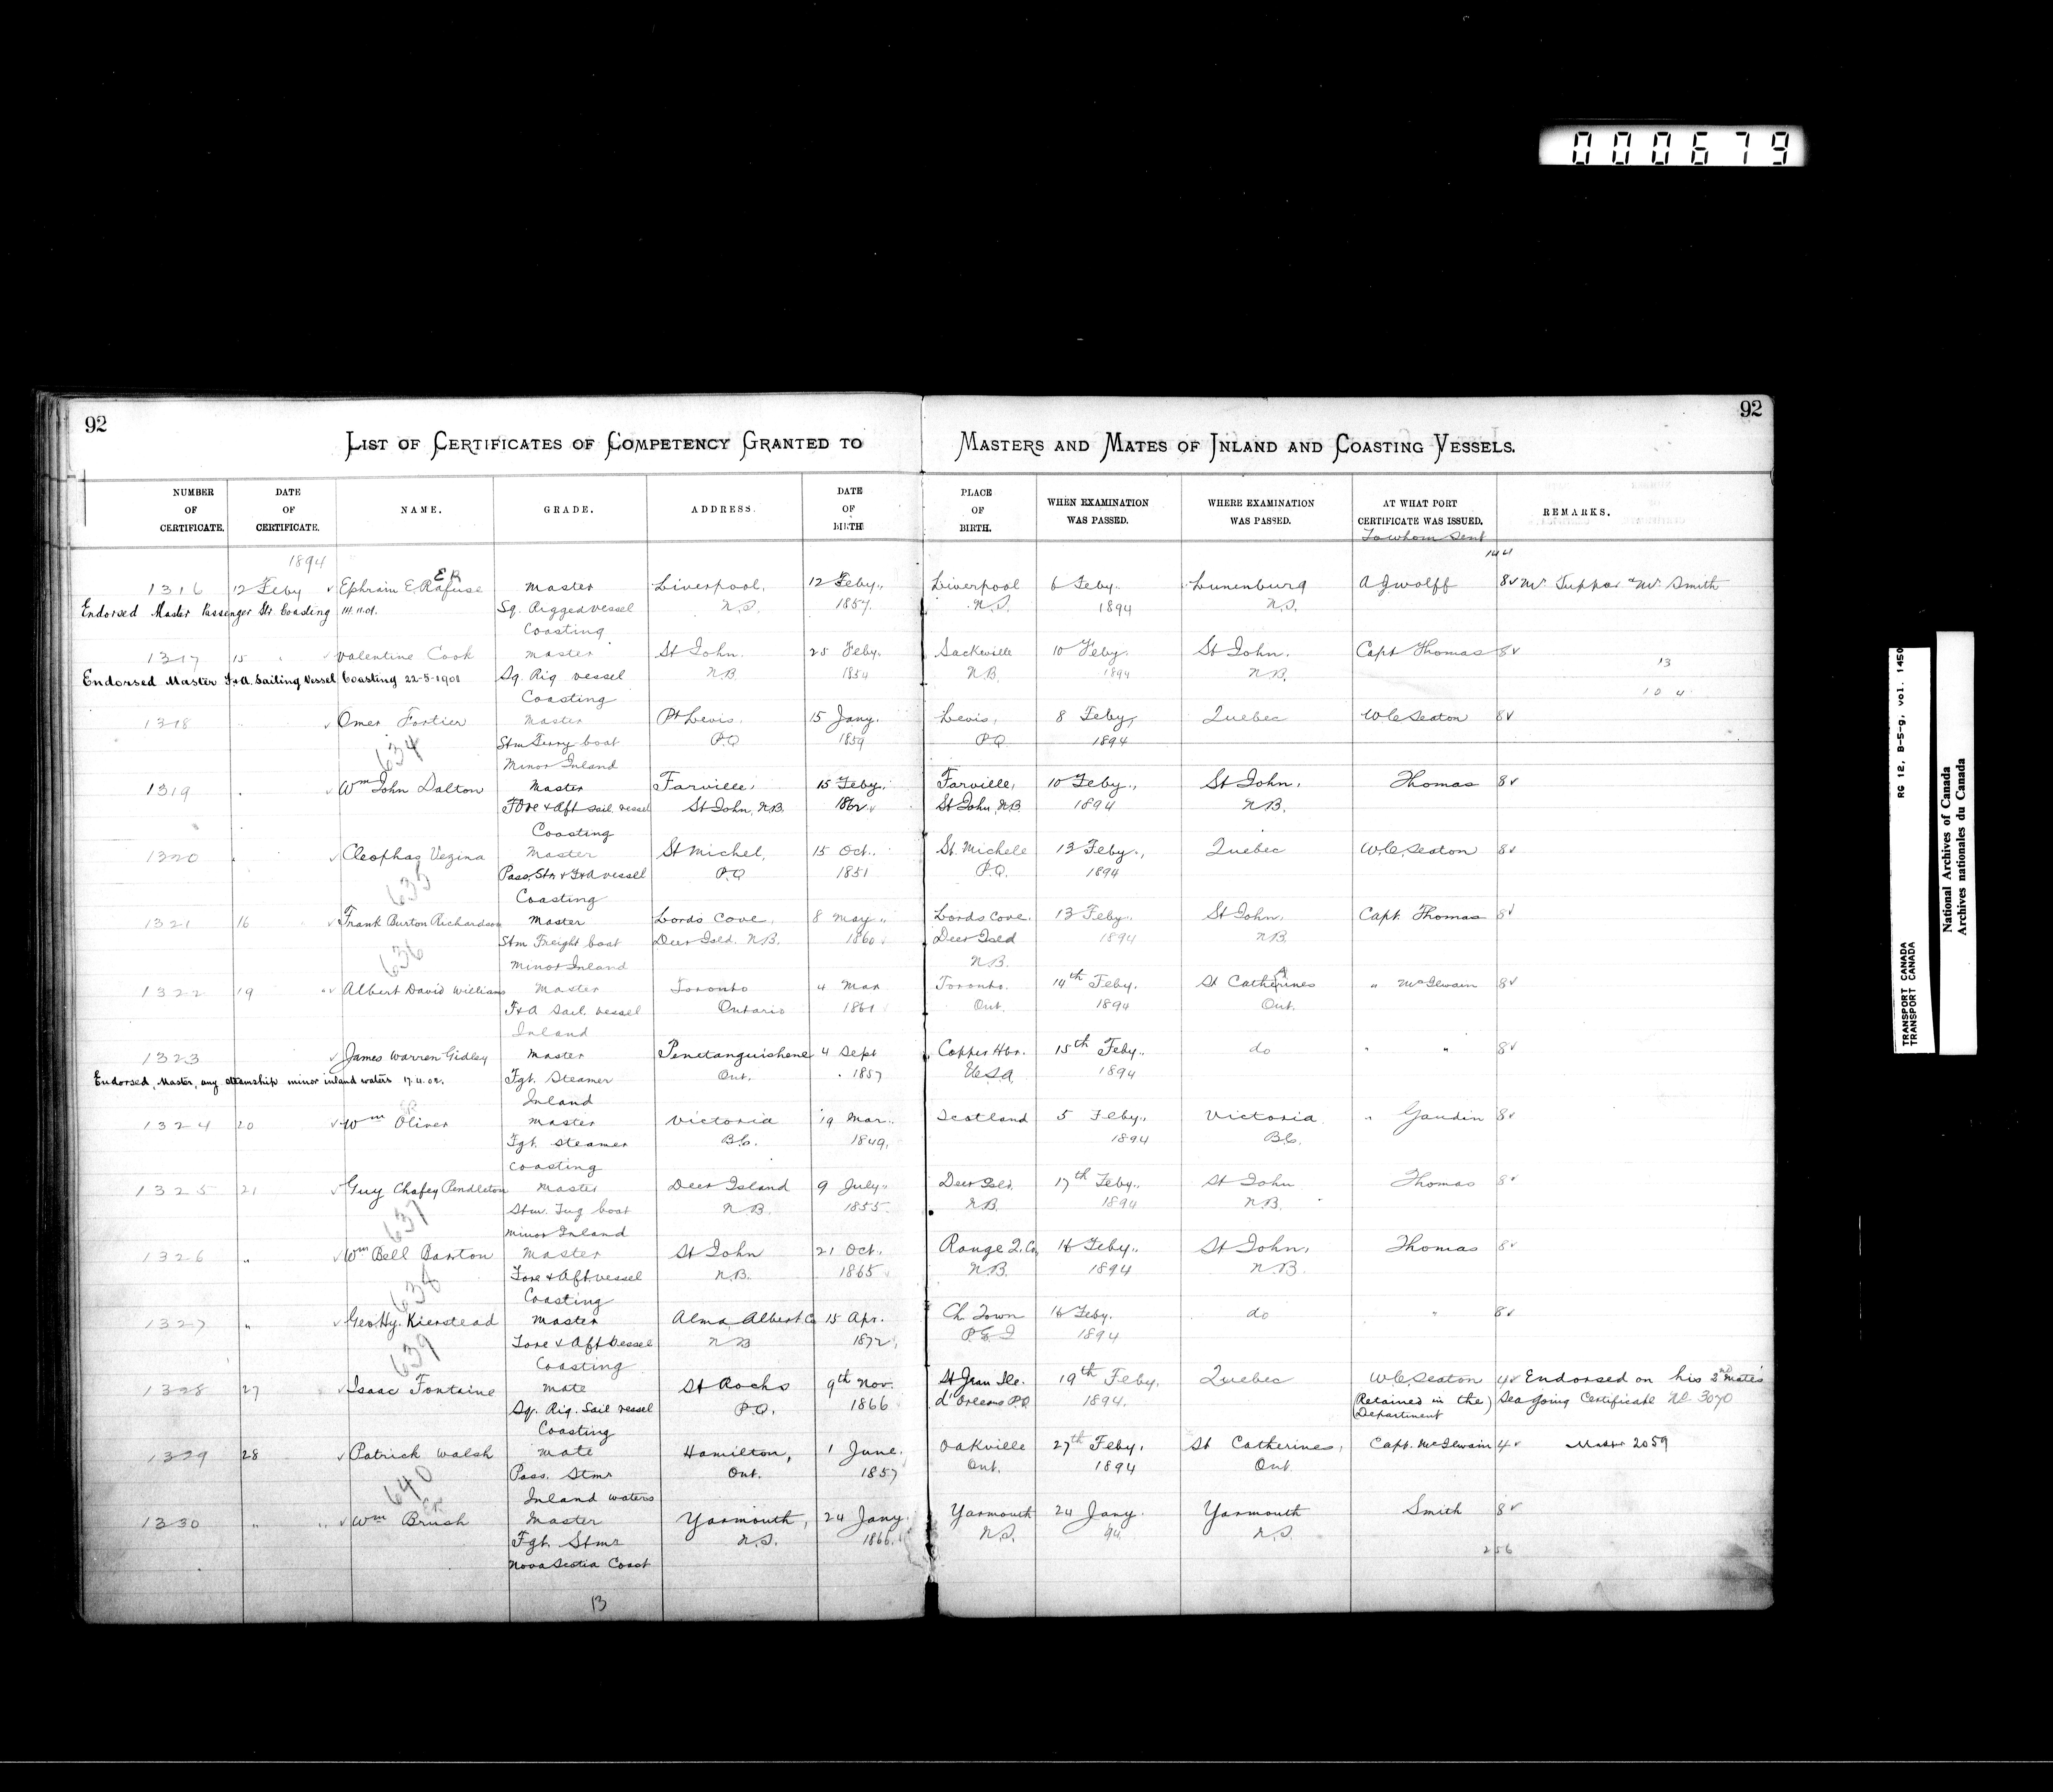 000679
92
92
LIST OF CERTIFICATES OF COMPETENCY GRANTED TO MASTERS AND MATES OF INLAND AND COASTING VESSELS.
NUMBER OF CERTIFICATE. DATE OF CERTIFICATE. NAME. GRADE. ADDRESS. DATE OF BIRTH PLACE OF BIRTH. WHEN EXAMINATION WAS PASSED. WHERE EXAMINATION WAS PASSED. AT WHAT PORT CERTIFICATE WAS ISSUED. REMARKS.
To whom sent
1894
144
ER
1316 12 Feby Ephraim E Rafuse Master Liverpool, 12 Feby. Liverpool 6 Feby. Lunenburg A J Wolff 8 Mr Tupper & Mr Smith
Endorsed Master Passenger Str. Coasting 111.11.01. Sq. Rigged vessel N.S. 1857. N.S. 1894 N.S.
Coasting
1317 15 " Valentine Cook Master St John. 25 Feby. Sackville 10 Feby. St John. Capt Thomas 8
13
Endorsed Master F&A. Sailing Vessel Coasting 22-5-1901 Sq. Rig vessel N.B. 1854 N.B. 1894 N.B.
Coasting
104
1318 " Omer Fortier Master Pt Levis. 15 Jany. Levis, 8 Feby, Quebec W C Seaton 8
634 Stm Ferry boat P.Q 1859 P.Q 1894
Minor Inland
1319 " Wm John Dalton Master Farville, 15 Feby. Farville, 10 Feby., St John, Thomas 8
Fore & Aft sail vessel St John, N.B. 1862 St John N.B 1894 N.B.
Coasting
1320 " Cleophas Vezina Master St Michel, 15 Oct. St. Michele 13 Feby., Quebec W.C. Seaton 8
635 Pass. Str & F&A vessel P.Q 1851 P.Q. 1894
Coasting
1321 16 Frank Burton Richardson Master Lords Cove, 8 May Lords Cove. 13 Feby. St John, Capt. Thomas 8
636 Stm Freight boat Deer Isld. N.B. 1860 Deer Isld 1894 N.B.
Minor Inland N.B.
1322 19 Albert David Williams Master Toronto 4 Mar Toronto. 14th Feby. St Catharines " McIlwain 8
F&A Sail. vessel Ontario 1861 Ont. 1894 Ont.
Inland
1323 James Warren Gidley Master Penetanguishene 4 Sept Copper Hbr. 15th Feby. do " " 8
Endorsed, Master, any steamship minor inland waters 17.4.02. Fgt. Steamer Ont. 1857 USA 1894
Inland
1324 20 Wm Oliver Master Victoria 19 Mar. Scotland 5 Feby. Victoria " Gaudin 8
Fgt. Steamer B.C. 1849. 1894 B.C.
Coasting
1325 21 Guy Chafey Pendleton Master Deer Island 9 July Deer Isld. 17th Feby. St John Thomas 8
637 Stm. Tug boat N.B. 1855. N.B. 1894 N.B.
Minor Inland
1326 " Wm Bell Barton Master St John 21 Oct. Range Q. Co. 16 Feby. St John, Thomas 8
638 Fore & Aft vessel N.B. 1865 N.B. 1894 N.B.
Coasting
1327 " Geo. Hy. Kierstead Master Alma Albert Co 15 Apr. Ch. Town 16 Feby. do " 8
639 Fore & Aft Vessel N B 1872 P.E.I 1894
Coasting
1328 27 Isaac Fontaine Mate St Rochs 9th Nov. St Jean Ile. 19th Feby. Quebec W.C. Seaton 4 Endorsed on his 2nd mate's
Sq. Rig. Sail vessel P.Q. 1866 d'Orleans P.Q 1894. (Retained in the Department) Sea going Certificate No 3070
Coasting
1329 28 Patrick Walsh Mate Hamilton, 1 June. Oakville 27th Feby. St Catherines, Capt. McIlwain 4 Master 2059
640 Pass. Stmr Ont. 1857 Ont. 1894 Ont
Inland waters
1330 " Wm Brush Master Yarmouth, 24 Jany. Yarmouth 24 Jany. Yarmouth Smith 8
Fgt. Stmr N.S. 1866. N.S. 94 N.S.
Nova Scotia Coast
256
13
RG 12, B-5-g, vol. 1450
TRANSPORT CANADA
TRANSPORT CANADA
National Archives of Canada
Archives nationales du Canada